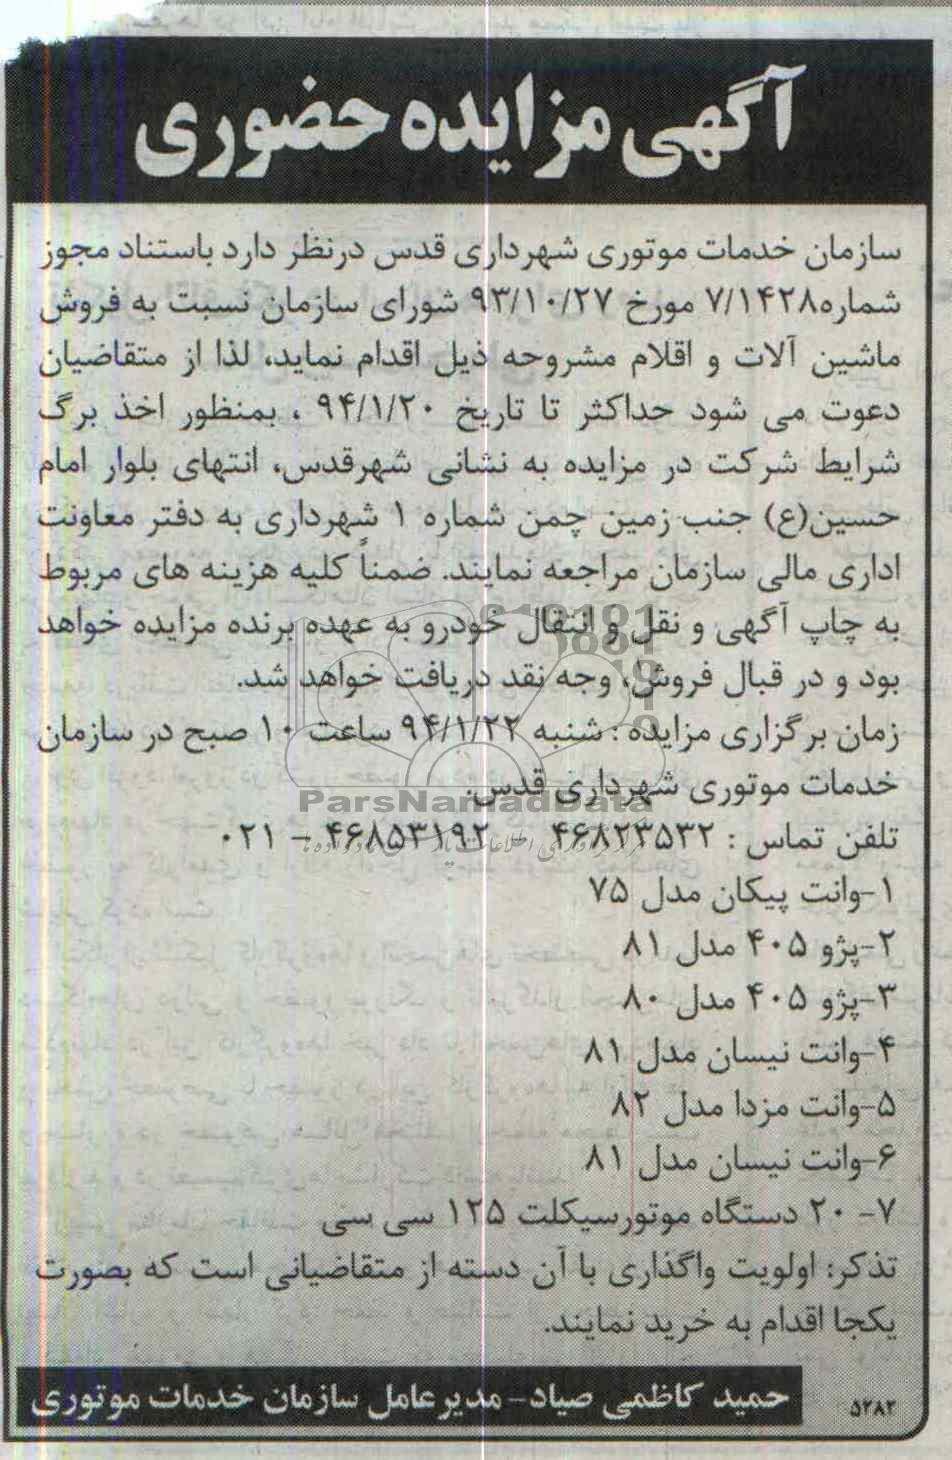 آگهی مزایده حضوری
سازمان خدمات موتوری شهرداری قدس درنظر دارد باستناد مجوز
شماره۷/۱۴۲۸ مورخ ۹۳/۱۰/۲۷ شورای سازمان نسبت به فروش
ماشین آلات و اقلام مشروحه ذیل اقدام نماید، لذا از متقاضیان
دعوت می شود حداکثر تا تاریخ ۹۴/۱/۲۰ ، بمنظور اخذ برگ
شرایط شرکت در مزایده به نشانی شهرقدس، انتهای بلوار امام
حسین(ع) جنب زمین چمن شماره ۱ شهرداری به دفتر معاونت
اداری مالی سازمان مراجعه نمایند. ضمناً کلیه هزینه های مربوط
به چاپ آگهی و نقل و انتقال خودرو به عهده برنده مزایده خواهد
بود و در قبال فروش، وجه نقد دریافت خواهد شد.
زمان برگزاری مزایده : شنبه ۹۴/۱/۲۲ ساعت ۱۰ صبح در سازمان
خدمات موتوری شهرداری قدس.
ParsNamadData
تلفن تماس : ۴۶۸۲۳۵۳۲ ۴۶۸۵۳۱۹۲ – ۰۲۱
۱-وانت پیکان مدل ۷۵
۲-پژو ۴۰۵ مدل ۸۱
۳-پژو ۴۰۵ مدل ۸۰
۴-وانت نیسان مدل ۸۱
۵-وانت مزدا مدل ۸۲
۶-وانت نیسان مدل ۸۱
۷- ۲۰ دستگاه موتورسیکلت ۱۲۵ سی سی
تذکر: اولویت واگذاری با آن دسته از متقاضیانی است که بصورت
یکجا اقدام به خرید نمایند.
حمید کاظمی صیاد- مدیرعامل سازمان خدمات موتوری
۵۲۸۲